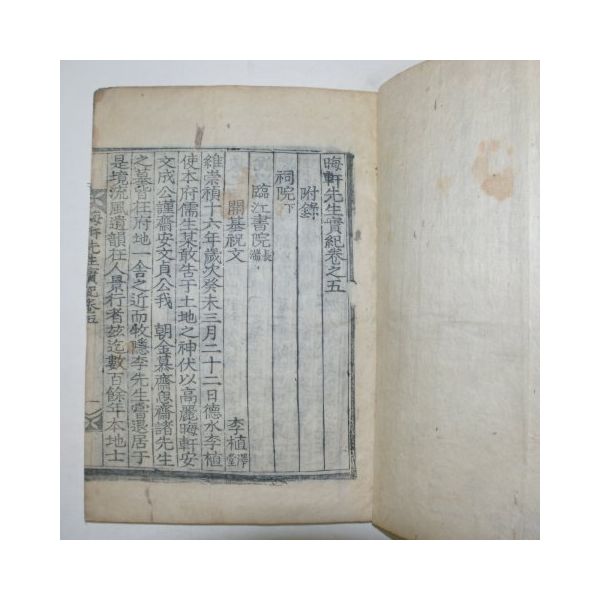 晦軒先生實紀卷之五
附錄
祠院下
臨江書院 長湍
開基祝文 李植 澤堂
維崇禎十六年歲次癸未三月二十二日德水李植
使本府儒生某敢告于土地之神伏以高麗晦軒安
文成公謹齋安文貞公我 朝金慕齋思齋諸先生
之墓皆在府地一舍之近而牧隱李先生嘗退居于
是境流風遺韻在人景行者玆迄數百餘年本地士
晦軒先生實紀卷五 一